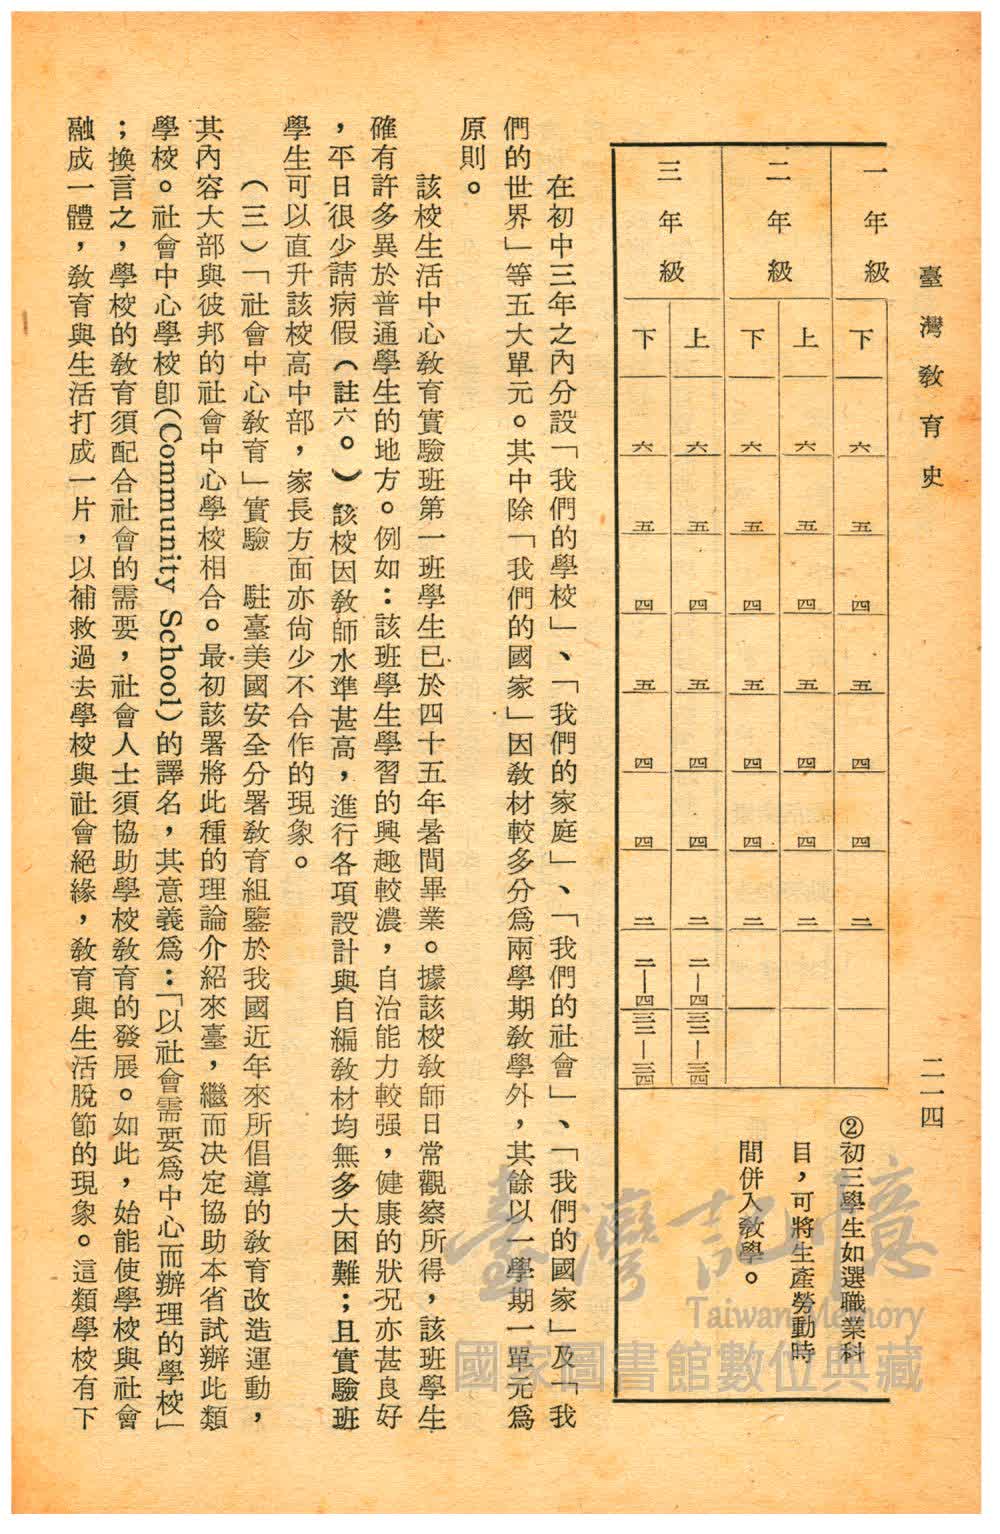 臺灣教育史
二一四
一年級 下 六 五 四 五 四 四 二
二年級 上 六 五 四 五 四 四 二
下 六 五 四 五 四 四 二
三年級 上 六 五 四 五 四 四 二 二—四 三二—三四
下 六 五 四 五 四 四 二 二—四 三二—三四
②初三學生如選職業科
目，可將生產勞動時
間併入教學。
在初中三年之內分設「我們的學校」、「我們的家庭」、「我們的社會」、「我們的國家」及「我
們的世界」等五大單元。其中除「我們的國家」因教材較多分爲兩學期教學外，其餘以一學期一單元爲
原則。
該校生活中心教育實驗班第一班學生已於四十五年暑間畢業。據該校教師日常觀察所得，該班學生
確有許多異於普通學生的地方。例如：該班學生學習的興趣較濃，自治能力較强，健康的狀況亦甚良好
，平日很少請病假（註六。）該校因教師水準甚高，進行各項設計與自編教材均無多大困難；且實驗班
學生可以直升該校高中部，家長方面亦尙少不合作的現象。
（三）「社會中心教育」實驗　駐臺美國安全分署教育組鑒於我國近年來所倡導的教育改造運動，
其內容大部與彼邦的社會中心學校相合。最初該署將此種的理論介紹來臺，繼而决定協助本省試辦此類
學校。社會中心學校卽(Community School)的譯名，其意義爲：「以社會需要爲中心而辦理的學校」
；換言之，學校的教育須配合社會的需要，社會人士須協助學校教育的發展。如此，始能使學校與社會
融成一體，教育與生活打成一片，以補救過去學校與社會絕緣，教育與生活脫節的現象。這類學校有下
臺灣記憶
Taiwan Memory
國家圖書館數位典藏